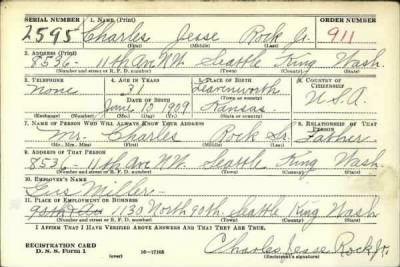 SERIAL NUMBER 1. NAME (Print) ORDER NUMBER
2595 Charles Jesse Rock Jr. 911
(First) (Middle) (Last)
2. ADDRESS (Print)
8536- 11th Ave N.W. Seattle King Wash.
(Number and street or R. F. D. number) (Town) (County) (State)
3. TELEPHONE 4. AGE IN YEARS 5. PLACE OF BIRTH 6. COUNTRY OF CITIZENSHIP
None 31 Leavenworth
DATE OF BIRTH (Town or county)
June 10 1909 Kansas. U.S.A.
(Exchange) (Number) (Mo.) (Day) (Yr.) (State or country)
7. NAME OF PERSON WHO WILL ALWAYS KNOW YOUR ADDRESS 8. RELATIONSHIP OF THAT PERSON
Mr. Charles Rock Sr. Father
(Mr., Mrs., Miss) (First) (Middle) (Last)
9. ADDRESS OF THAT PERSON
8536- 11th Ave N.W. Seattle King Wash.
(Number and street or R. F. D. number) (Town) (County) (State)
10. EMPLOYER'S NAME
Gus Miller
11. PLACE OF EMPLOYMENT OR BUSINESS
130 North 90th. Seattle King Wash
(Number and street or R. F. D. number) (Town) (County) (State)
I AFFIRM THAT I HAVE VERIFIED ABOVE ANSWERS AND THAT THEY ARE TRUE.
REGISTRATION CARD
D. S. S. Form 1 (over) 16-17105 Charles Jesse Rock Jr.
(Registrant's signature)